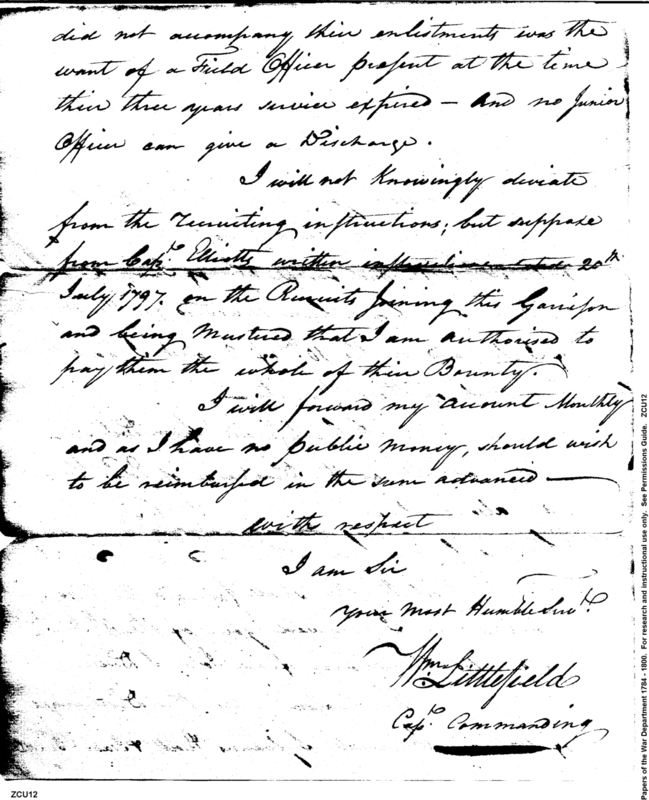 did not accompany their enlistments was the
want of a Field Officer present at the time
their three years service expired — And no Junior
Officer can give a Discharge.
I will not Knowingly deviate
from the recruiting instructions; but suppose
from Capt. Elliotts written instructions dated 20th
July 1797. on the Recruits Joining this Garrison
and being Mustered that I am authorised to
pay them the whole of their Bounty.
I will forward my account Monthly
and as I have no public money, should wish
to be reimbursed in the sum advanced —
with respect
I am Sir
your most Humble Servt.
Wm. Littlefield
Capt. Commanding
ZCU12
Papers of the War Department 1784 - 1800. For research and instructional use only. See Permissions Guide. ZCU12